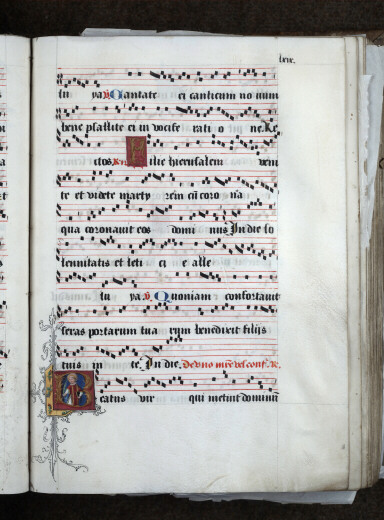 lxix.
lu ya. V. Cantate ei canticum no vum
bene psallite ei in vocife rati o ne. Re
ctos. R. Filie hierusalem veni
te et videte marty rem cū coro na
qua coronavit eos domi nus. In die so
lennitatis et leti ci e alle
lu ya. V. Quoniam confortavit
seras portarum tua rum benedixit filijs
tuis in te. In die. De uno mr̄e vel conf.
Beatus vir qui metuit dominū